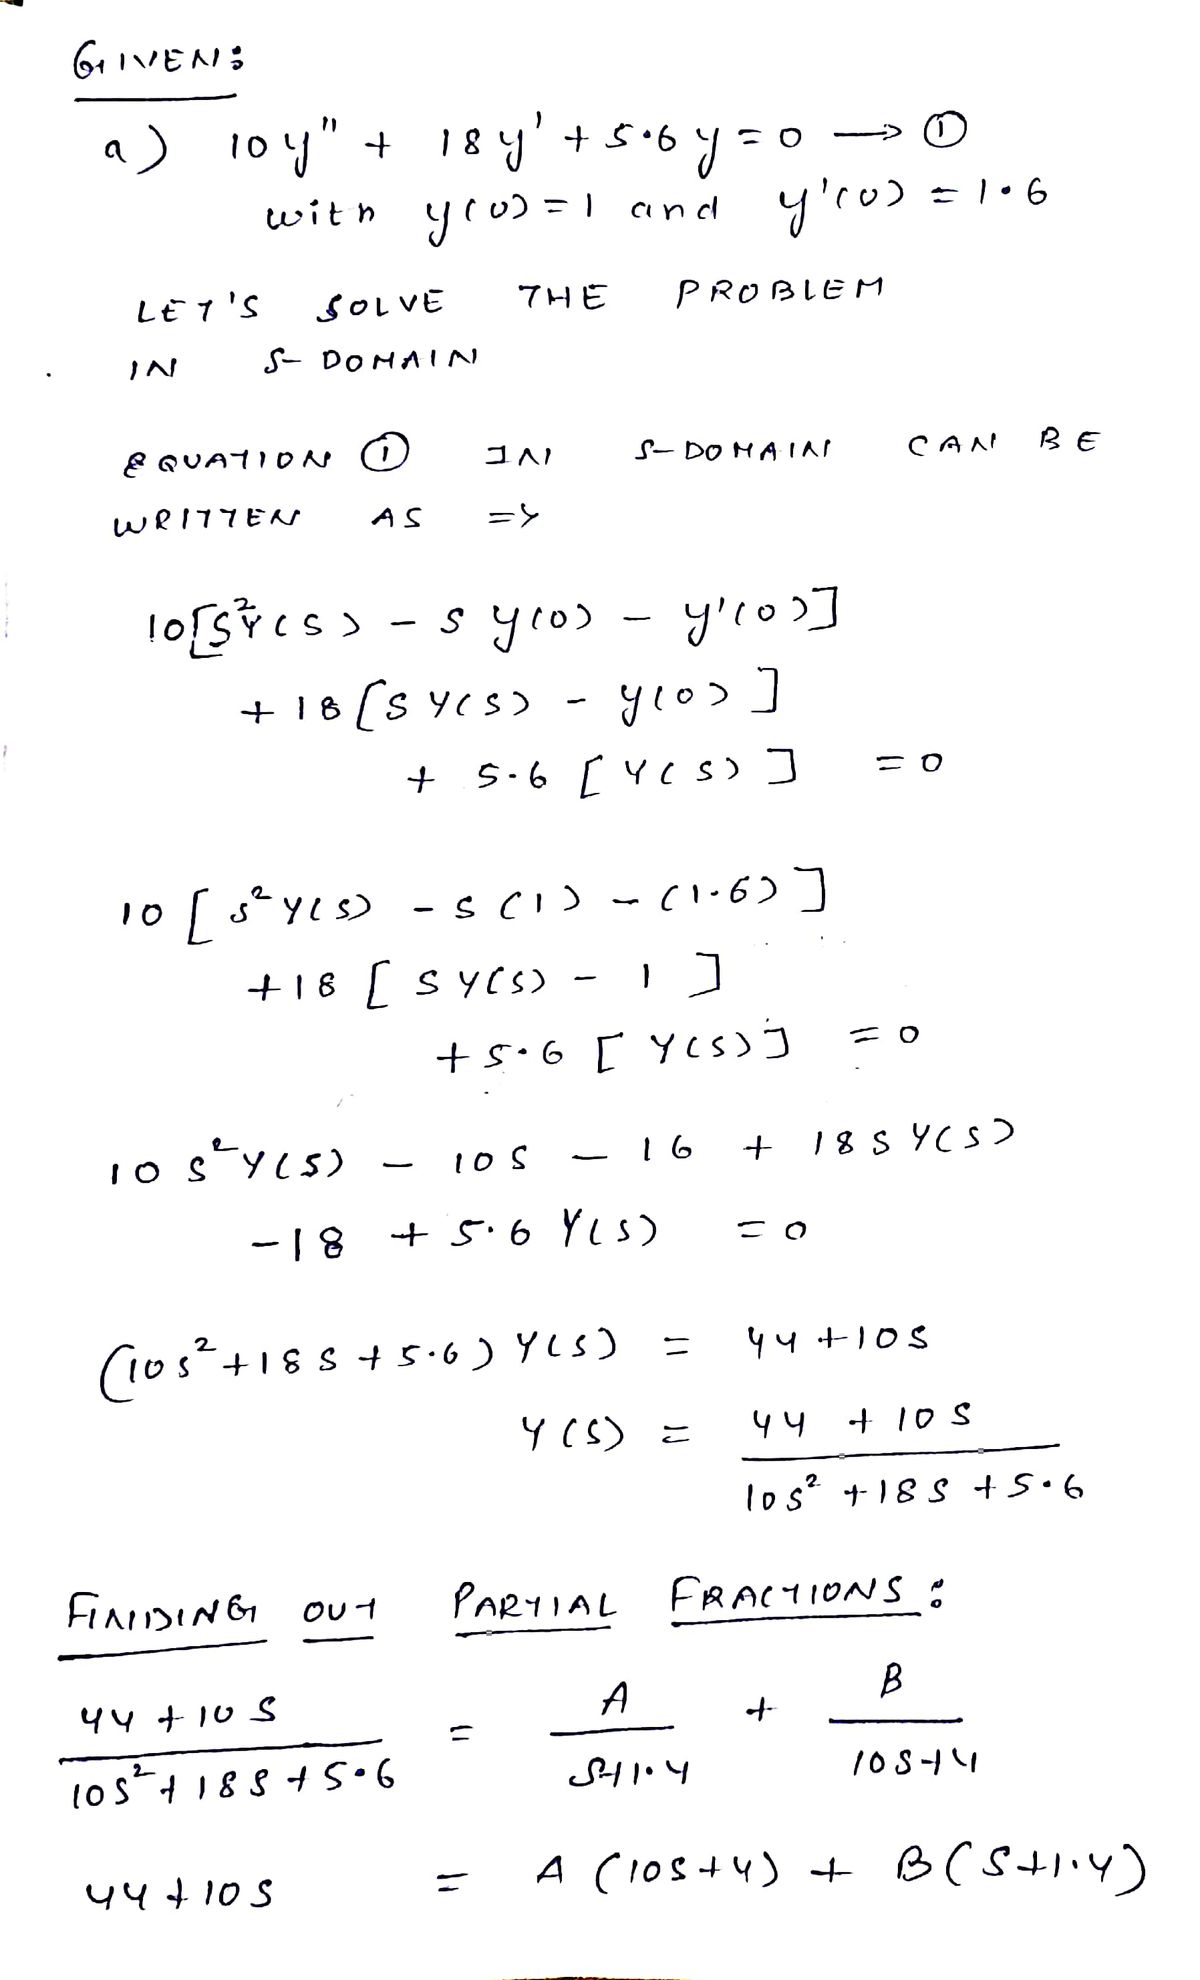 GIVEN:
a) 10y" + 18y' + 5.6y = 0 → ①
with y(0) = 1 and y'(0) = 1.6
LET'S SOLVE THE PROBLEM
IN S-DOMAIN
EQUATION ① IN S-DOMAIN CAN BE
WRITTEN AS =>
10[S²Y(S) - S y(0) - y'(0)]
+ 18[S Y(S) - y(0)]
+ 5.6 [Y(S)] = 0
10 [S²Y(S) - S(1) - (1.6)]
+18 [S Y(S) - 1]
+5.6 [Y(S)] = 0
10 S²Y(S) - 10S - 16 + 18S Y(S)
-18 + 5.6 Y(S) = 0
(10S² + 18S + 5.6) Y(S) = 44 + 10S
Y(S) = 44 + 10S / 10S² + 18S + 5.6
FINDING OUT PARTIAL FRACTIONS:
44 + 10S / 10S² + 18S + 5.6 = A / S+1.4 + B / 10S+4
44 + 10S = A (10S+4) + B (S+1.4)